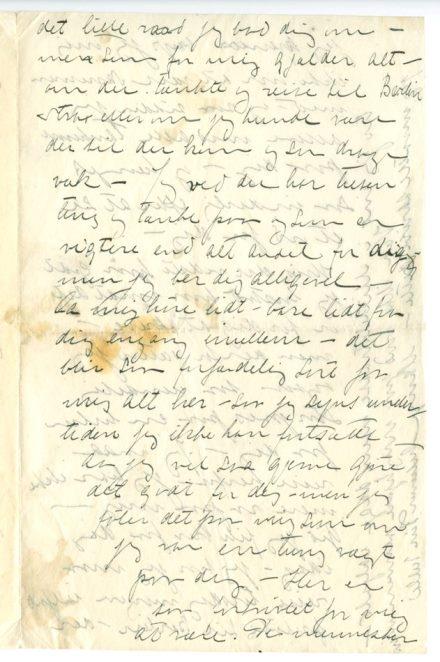 det lille raad jeg bad dig om –
men som for mig gjælder alt –
om du tænkte reise til Berlin
strax eller om jeg kunde være
der til du kom og så drage
væk – Jeg ved du har tusen
ting at tænke paa og som er
vigtere end alt andet for dig –
men jeg ber dig alligevel –
La mig høre lidt – bare lidt fra
dig engang imellem – det
blir så forfærdelig sort for
mig alt her – så jeg synes under
tiden jeg ikke kan fortsætte
da jeg vil så gjerne gjøre
det godt for dig – men jeg
føler det for mig som om
jeg var en tung vægt
paa dig – Her er
så for mig
at være. De mennesker